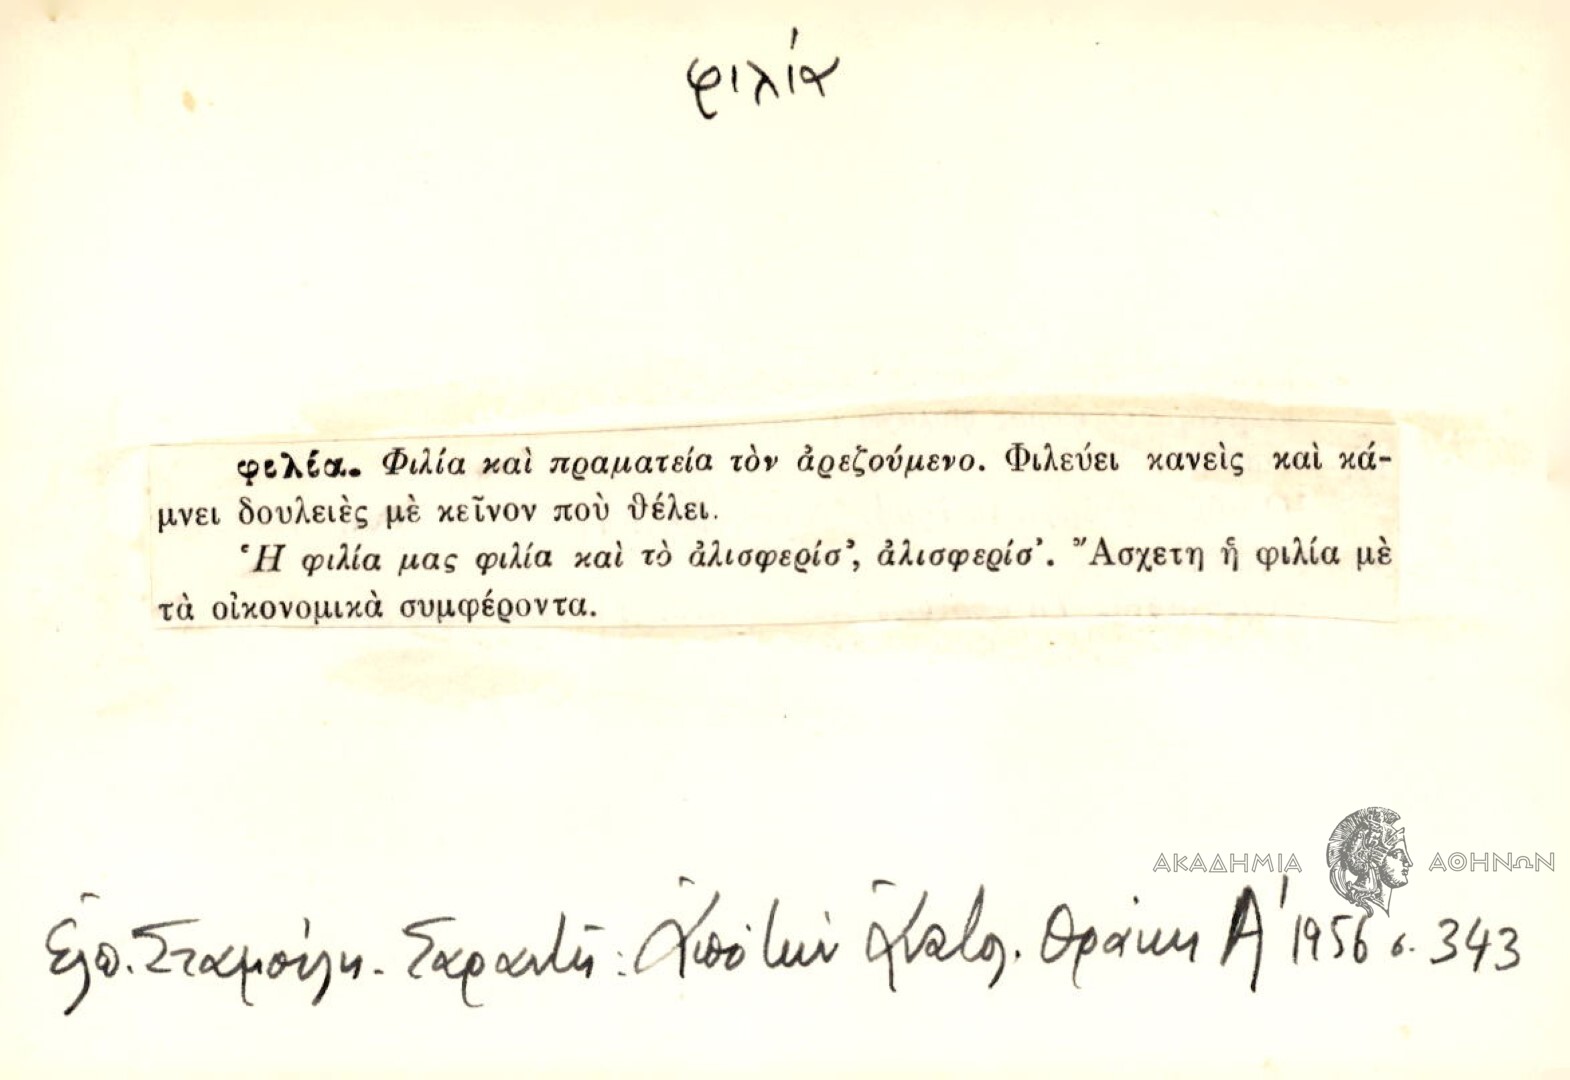 φιλία
φιλία. Φιλία καὶ πραματεία τὸν ἀρεζούμενο. Φιλεύει κανεὶς καὶ κά-
μνει δουλειὲς μὲ κεῖνον ποὺ θέλει.
Ἡ φιλία μας φιλία καὶ τὸ ἀλισφερίσ', ἀλισφερίσ'. Ἄσχετη ἡ φιλία μὲ
τὰ οἰκονομικὰ συμφέροντα.
ΑΚΑΔΗΜΙΑ ΑΘΗΝΩΝ
Ἐλπ. Σταμούλη - Σαραντῆ: Ἀπὸ τὴν Ἀνατολ. Θράκη Α' 1956 σ. 343